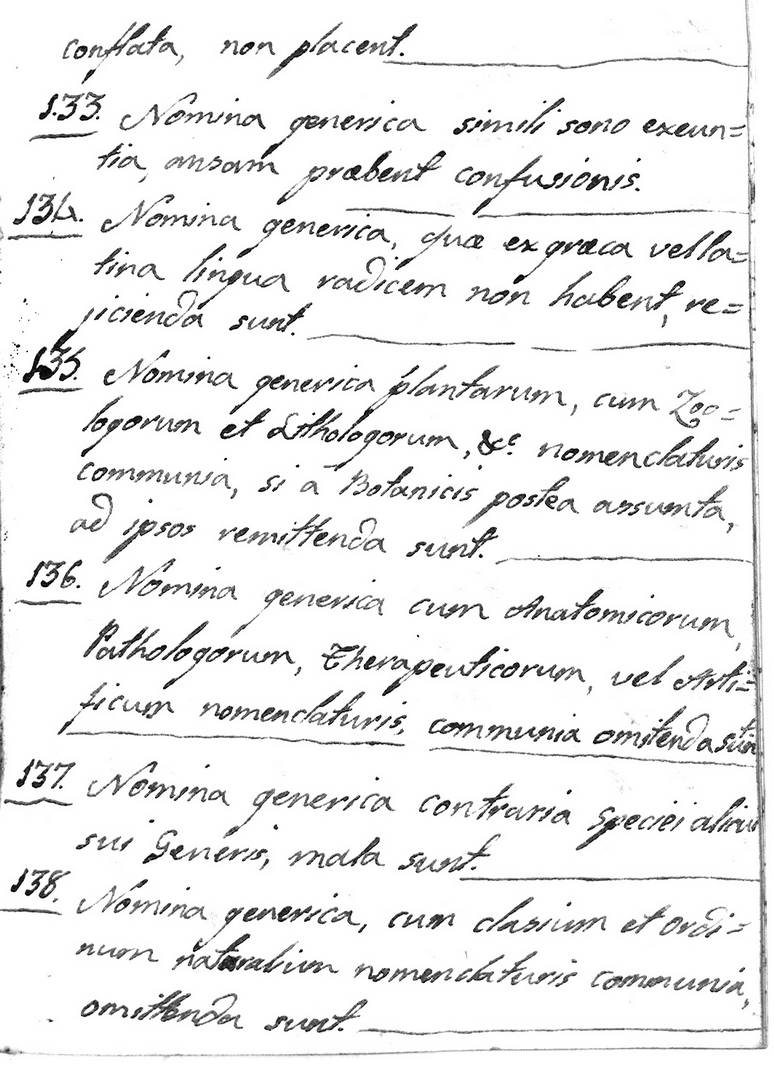 conflata, non placent.
133. Nomina generica simili sono exeun=
tia, ansam præbent confusionis.
134. Nomina generica, quæ ex græca vel la=
tina lingua radicem non habent, re=
jicienda sunt.
135. Nomina generica plantarum, cum Zoo=
logorum et Lithologorum, &c. nomenclaturis
communia, si a Botanicis postea assumta,
ad ipsos remittenda sunt.
136. Nomina generica cum Anatomicorum,
Pathologorum, Therapeuticorum, vel Arti=
ficum nomenclaturis, communia omitenda sunt
137. Nomina generica contraria speciei alicui
sui Generis, mala sunt.
138. Nomina generica, cum classium et ordi=
num naturalium nomenclaturis communia,
omittenda sunt.